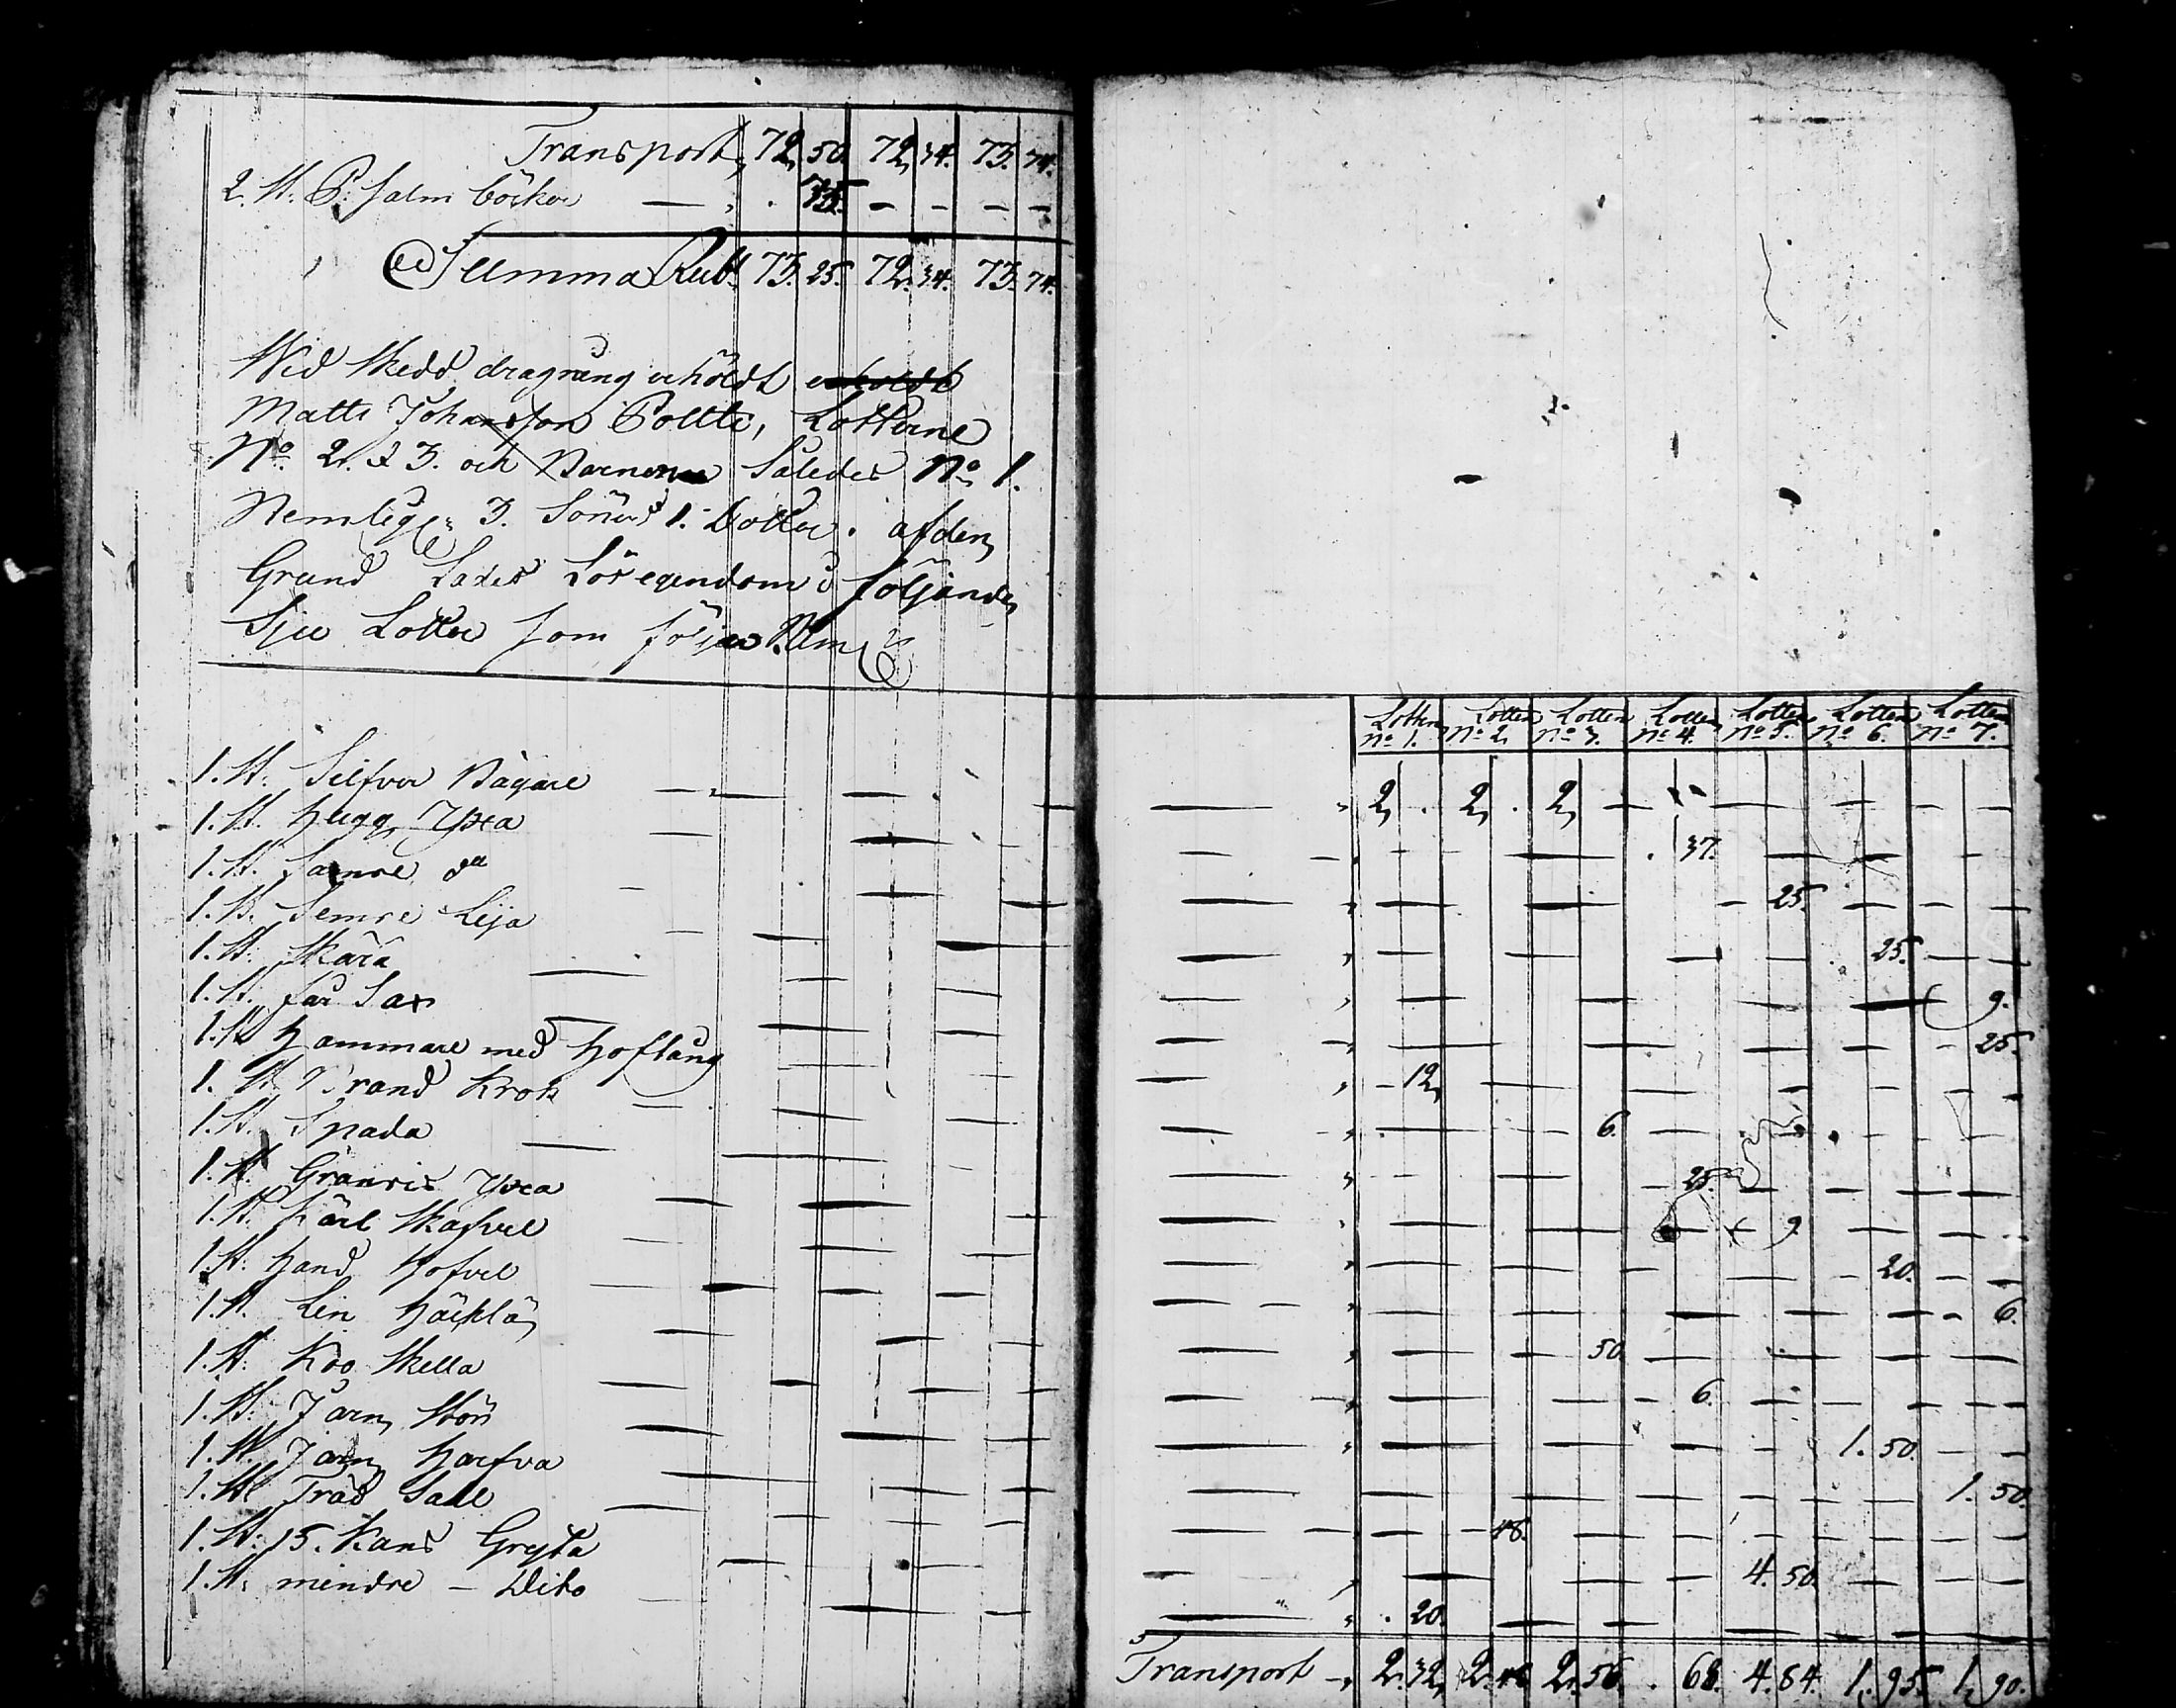 Transport, 72, 50. 72, 34. 73. 74.
2. St. P: salm böcker — , . 75. — — — —
Summa Rub. 73. 25. 72. 34. 73. 74.
Wid skedd dragning erhöldt erholdt
Matts Johansson Poltti, Lotterne
No. 2. & 3. och Barnen Således No 1.
Nemligen 3. Söner 1. Dotter. af den
Grund Lades Lösegendom i följande
Sju Lotter som följer Nem
Lotten No 1. Lotten No 2. Lotten No 3. Lotten No 4. Lotten No 5. Lotten No 6. Lotten No 7.
1. St. Silfver Bägare — 2, . 2, . 2, — — — — —
1. St. hugg Yxa — — — — . 37. — — —
1. St. Sämre do — — — — 25. — — —
1. St. Semre Lija — — — — — . 25. — —
1. St. Skära — — — — — 9.
1. St. får Sax — — — — — — 25.
1. St. hammare med hoftång — 12, — — — — —
1. St. Brand Krok — . — — 6. — — — —
1. St. Spada — — — — 25. — — — —
1. St. Granris Yxa — — — — 9. — — —
1. St. Kärl Skafvel — — — — — 20. — —
1. St. hand hofvel — — — — — — 6.
1. St. Lin häcklä — — — 50. — — — —
1. St. Koo Skella — — — — 6. — — — —
1. St. Järn Stör — — — — — 1. 50. — —
1. St. Jarn harfva — — — — — — 1. 50.
1. St. Träd Såll — — — 48. — — — — —
1. St. 15. Kans Gryta — — — — 4. 50. — — —
1. St. mindre — Dito — . 20. — — — — —
Transport — 2. 32, 2. 48 2. 56. . 68. 4. 84. 1. 95. 1. 90.